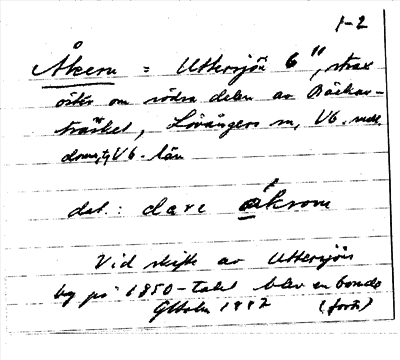 1-2
Åkern = Uttersjön 6", strax
öster om södra delen av Bäckar-
träsket, Lövångers sn, Vb. 
doms, Vb. län
dat.: dare åkrom
Vid skifte av Uttersjöns
by på 1850-talet blev en bonde
1882 (forts)